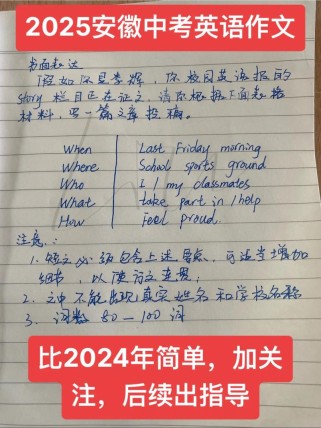 2025安徽中考英语作文
书面表达
假如你是李辉，你校园英语报的
story 栏目正在征文，请你根据下面表格
材料，写一篇文章投稿。
When Last Friday morning
Where School sports ground
Who I / my classmates
What take part in / help
How Feel proud.
注意：
1. 短文必须包含上述要点，可适当增加
细节，以使行文连贯；
2. 文中不能出现真实姓名和学校名称
3. 词数 80－100 词
比2024年简单，加关
注，后续出指导